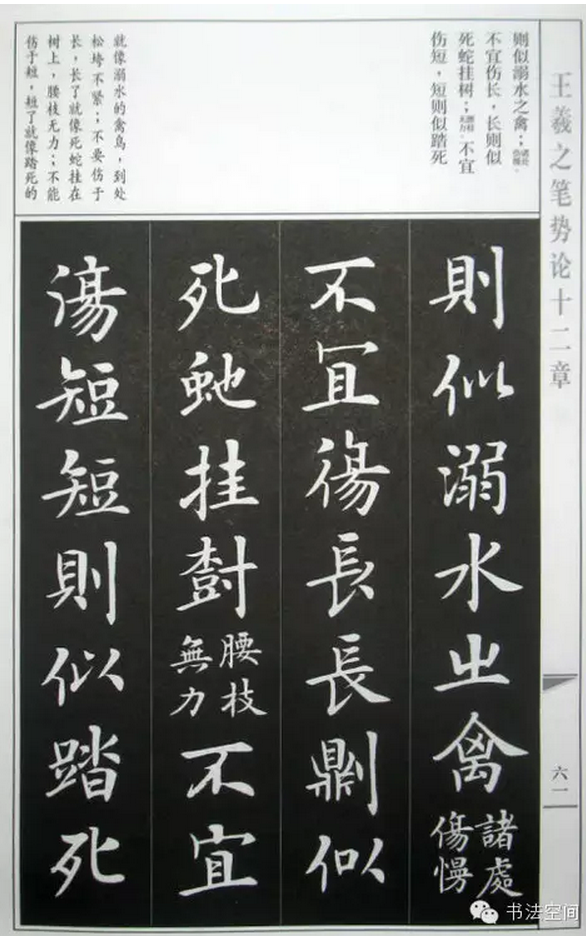 王羲之笔势论十二章
六一
则似溺水之禽；诸处伤慢。
不宜伤长，长则似
死蛇挂树；腰枝无力。不宜
伤短，短则似踏死
就像溺水的禽鸟，到处
松垮不紧；不要伤于
长，长了就像死蛇挂在
树上，腰枝无力；不能
伤于短，短了就像踏死的
則似溺水㞢禽諸處傷慢
不宜傷長長則似
死虵挂樹腰枝無力不宜
傷短短則似踏死
书法空间